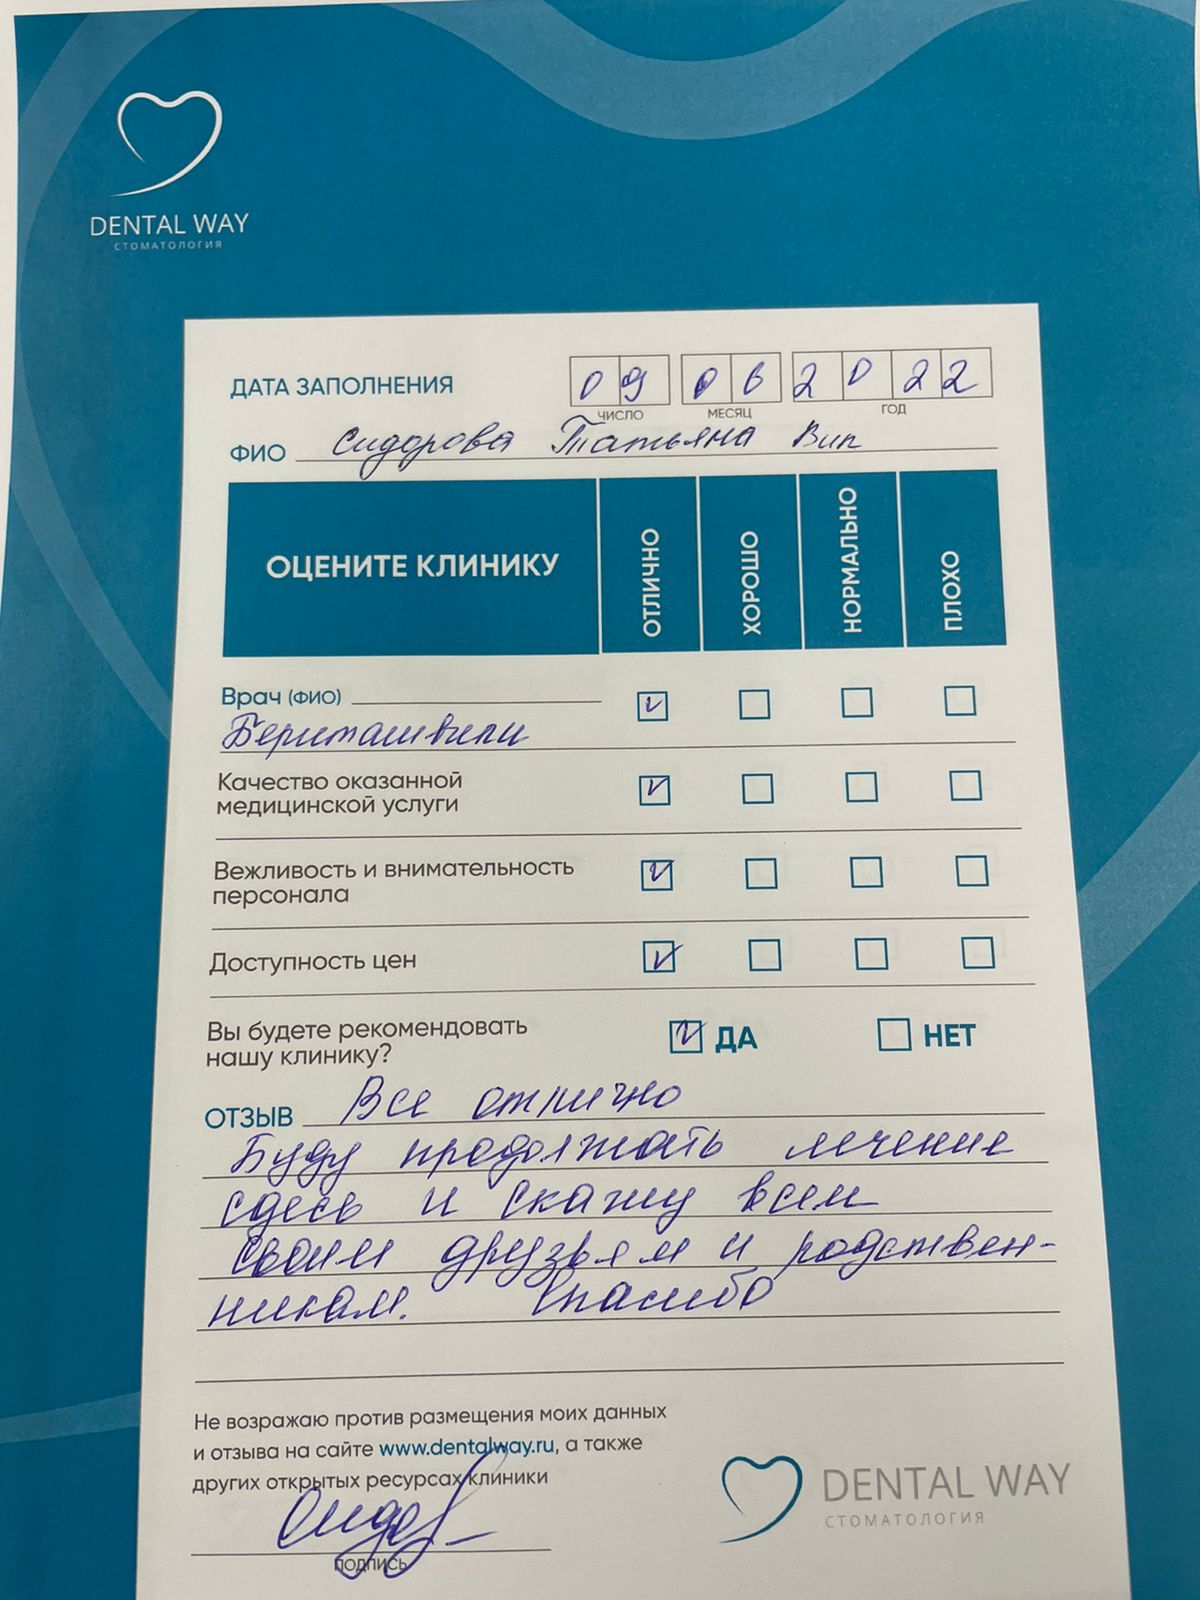 DENTAL WAY
СТОМАТОЛОГИЯ
ДАТА ЗАПОЛНЕНИЯ 09 06 2022
ЧИСЛО МЕСЯЦ ГОД
ФИО Сидорова Татьяна Вик
ОЦЕНИТЕ КЛИНИКУ ОТЛИЧНО ХОРОШО НОРМАЛЬНО ПЛОХО
Врач (ФИО)
Бериташвили
Качество оказанной
медицинской услуги
Вежливость и внимательность
персонала
Доступность цен
Вы будете рекомендовать
нашу клинику?
ДА НЕТ
ОТЗЫВ Все отлично
Буду продолжать лечение
здесь и скажу всем
своим друзьям и родствен-
никам. Спасибо
Не возражаю против размещения моих данных
и отзыва на сайте www.dentalway.ru, а также
других открытых ресурсах клиники
ПОДПИСЬ
DENTAL WAY
СТОМАТОЛОГИЯ